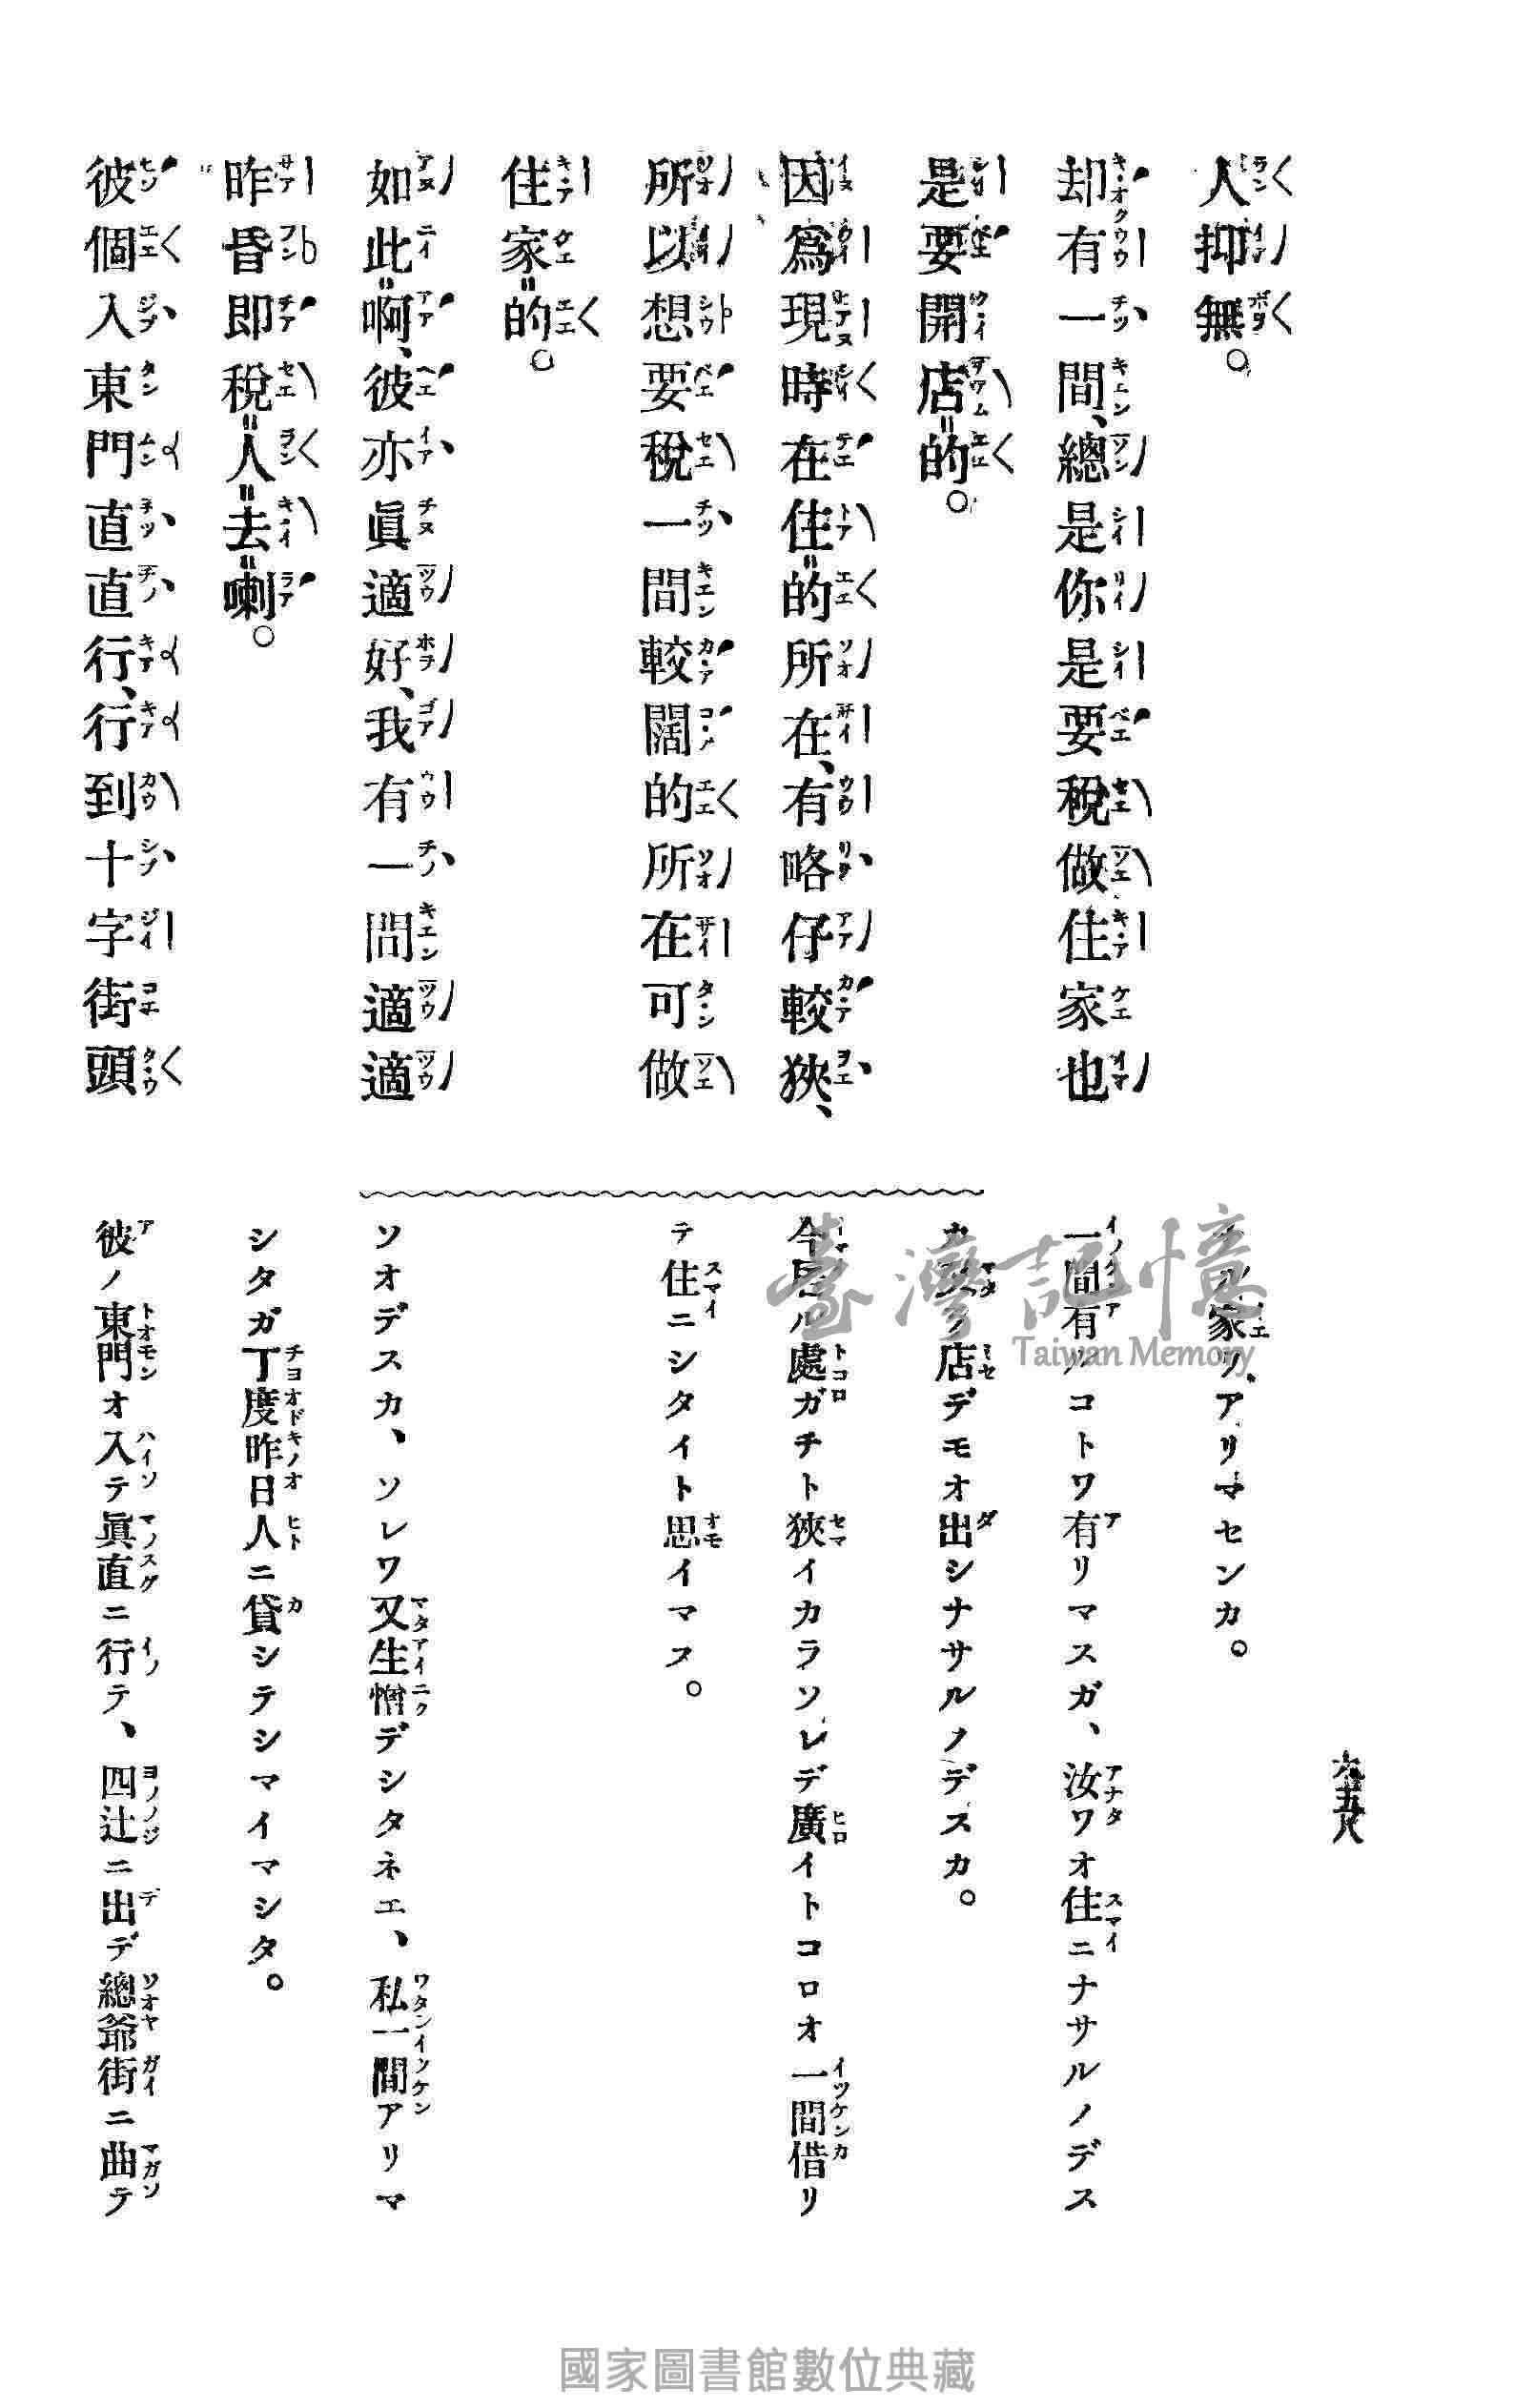 人抑無。
却有一間、總是你是要稅做住家也
是要開店=的。
因爲現時在住=的所在、有略仔較狹、
所以想要稅一間較闊的所在可做
住家=的。
如此=啊、彼亦眞適好、我有一間適適
昨昏即稅=人=去=喇。
彼個入東門直直行、行到十字街頭
家ヲ、アリマセンカ。
一間有ルコトワ有リマスガ、汝ワオ住ニナサルノデス
カ又タ店デモオ出シナサルノデスカ。
今居ル處ガチト狹イカラソレデ廣イトコロオ一間借リ
テ住ニシタイト思イマス。
ソオデスカ、ソレワ又生憎デシタネエ、私一間アリマ
シタガ丁度昨日人ニ貸シテシマイマシタ。
彼ノ東門オ入テ眞直ニ行テ、四辻ニ出デ總爺街ニ曲テ
六五八
臺灣記憶
Taiwan Memory
國家圖書館數位典藏